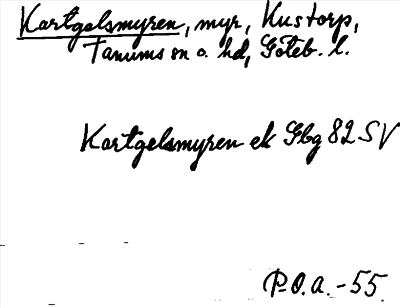 Kartgelsmyren, myr, Kustorp,
Tanums sn o. hd, Göteb. l.
Kartgelsmyren ek Gbg 82 SV
P.O.a. -55.